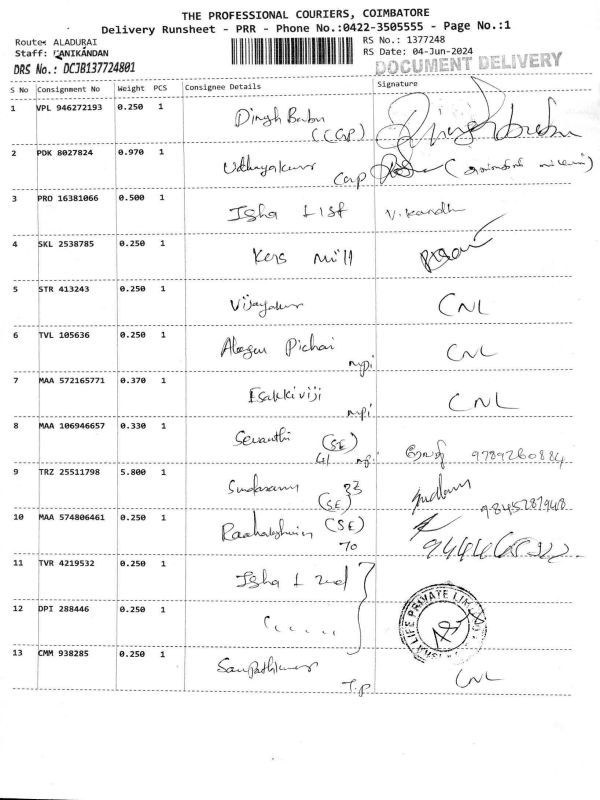 THE PROFESSIONAL COURIERS, COIMBATORE
Delivery Runsheet - PRR - Phone No.:0422-3505555 - Page No.:1
Route: ALADURAI
Staff: MANIKANDAN
DRS No.: DCJB137724801
RS No.: 1377248
RS Date: 04-Jun-2024
DOCUMENT DELIVERY
S No Consignment No Weight PCS Consignee Details Signature
1 VPL 946272193 0.250 1 Dinesh Babu
2 PDK 8027824 0.970 1 Udhayakumar
3 PRO 16381066 0.500 1 Isha List V. Kandh
4 SKL 2538785 0.250 1 Kers mill
5 STR 413243 0.250 1 Vijayakumar CNL
6 TVL 105636 0.250 1 Alagu Pichai mpi CNL
7 MAA 572165771 0.370 1 Esakkiviji mpi CNL
8 MAA 106946657 0.330 1 Sevanthi (SE) 41 9789260884
9 TRZ 25511798 5.800 1 Sundaram 33 (SE) 9845287948
10 MAA 574806461 0.250 1 (SE) 70
11 TVR 4219532 0.250 1 Isha L
12 DPI 288446 0.250 1 " " " PRIVATE LIMITED
13 CMM 938285 0.250 1 Sampathkumar T.P CNL